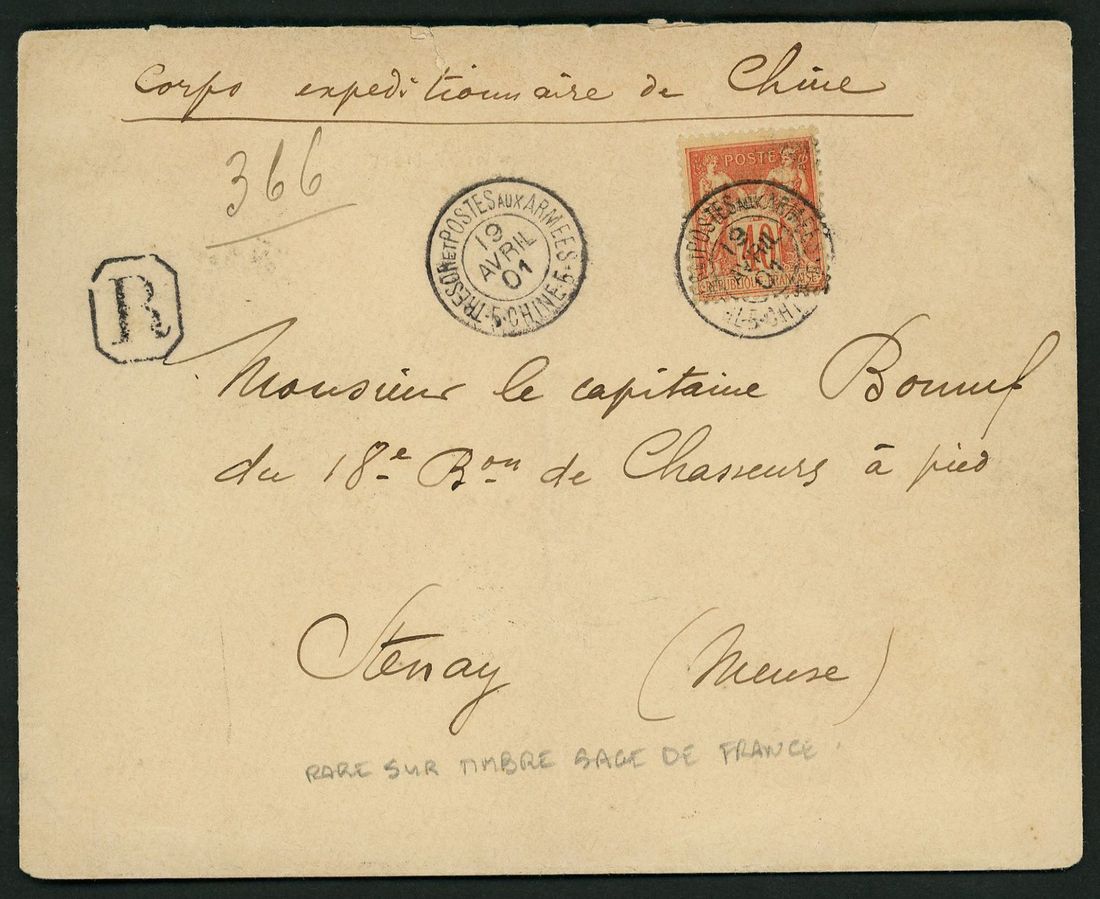 Corps expeditionnaire de Chine
366
POSTE
40
REPUBLIQUE FRANCAISE
TRESOR ET POSTES AUX ARMEES
19
AVRIL
01
5 · CHINE · 5
POSTES AUX ARMEE
19
AVRIL
01
5 · CHI
R
Monsieur le capitaine
du 18e Bon de Chasseurs à pied
Stenay (Meuse)
RARE SUR TIMBRE SAGE DE FRANCE